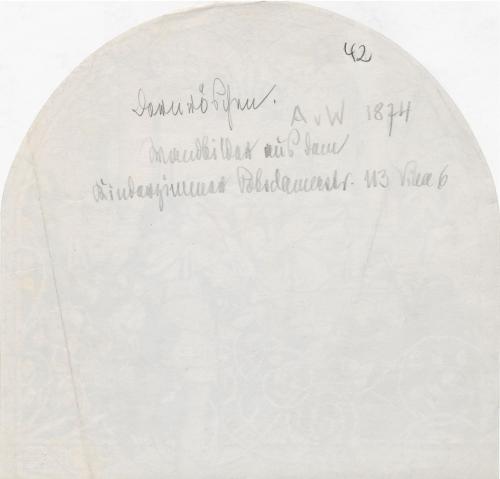 42
Dornröschen.
AvW 1874
Wandbilder aus dem
Kinderzimmer Potsdamerstr. 113 Villa 6